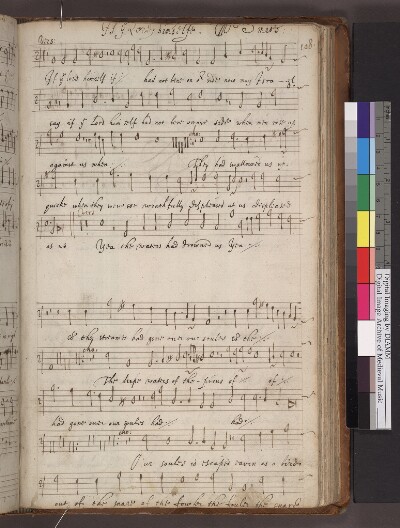 If yᵉ Lord himselfe Mr
108
Vers
If yᵉ Lord himself had not been on oʳ side now may Israel
say if yᵉ Lord himself had not been on our side when men rose up
against us when cho. They had swallowed us up
quicke when they were so wrathfully displeased at us displeased
vers
at us Yea the waters had drowned us Yea
& the streame had gone over our soules & the
cho.
The deepe waters of the proud of of
had gone over our soules had had
cho.
Our soule is escaped even as a bird
out of the snare of the fowler the fowler the snare
Digital Imaging by DIAMM
Digital Image Archive of Medieval Music